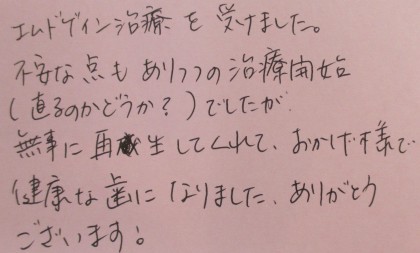 エムドゲイン治療を受けました。
不安な点もありつつの治療開始
(直るのかどうか?)でしたが
無事に再生してくれて、おかげ様で
健康な歯になりました、ありがとう
ございます!